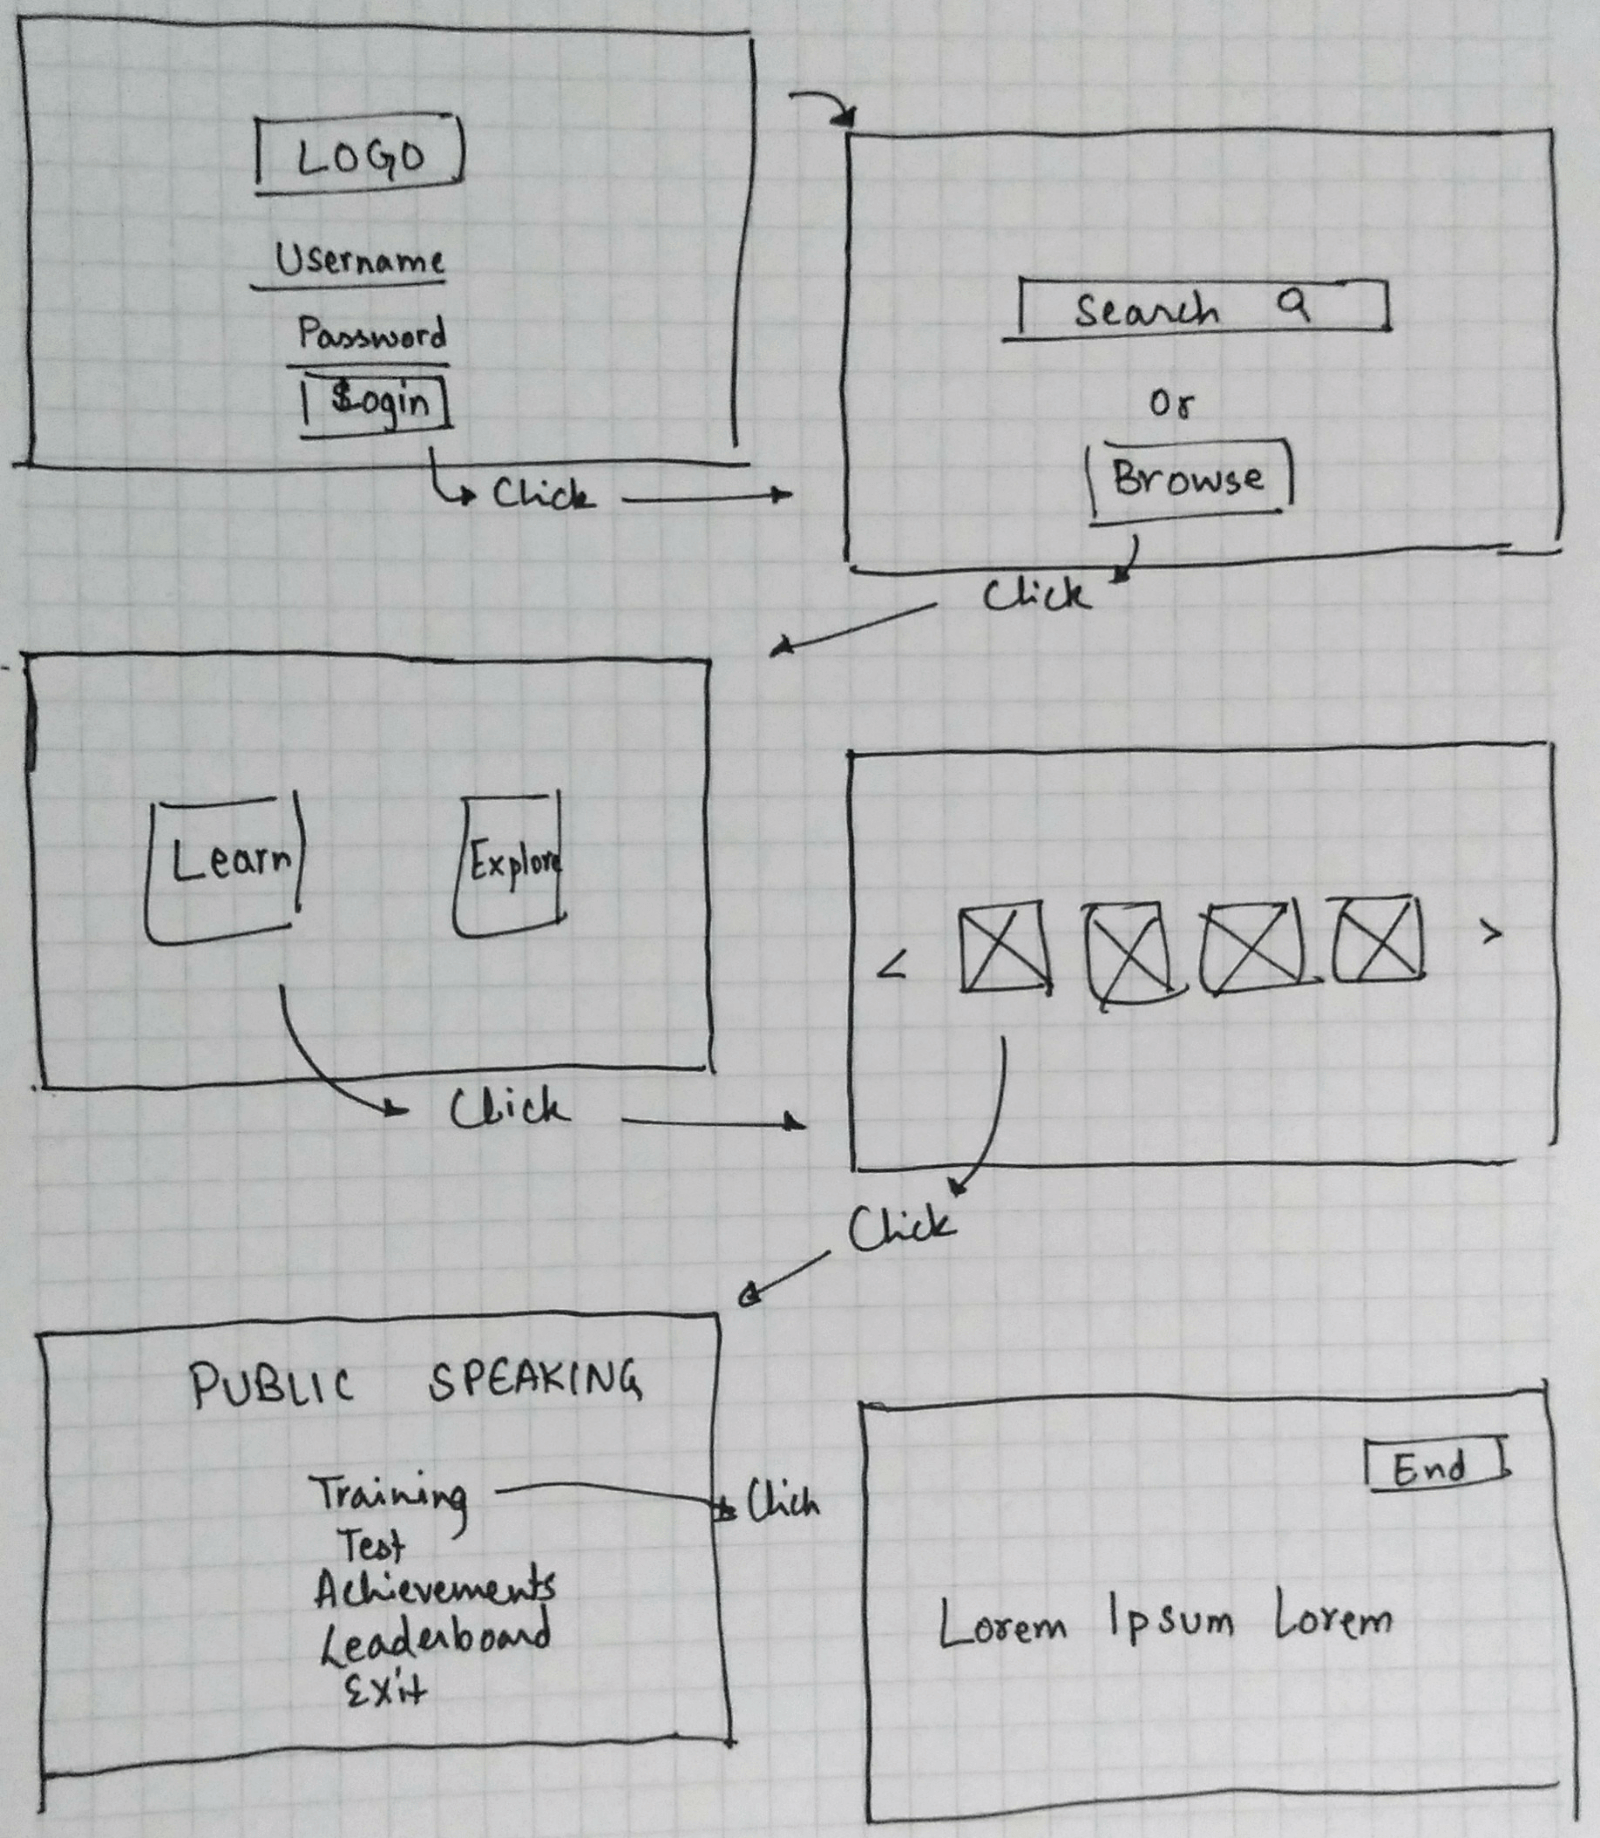 LOGO
Username
Password
Login
Click
Search
Or
Browse
Click
Learn
Explore
Click
<
>
Click
PUBLIC SPEAKING
Training
Click
Test
Achievements
Leaderboard
Exit
End
Lorem Ipsum Lorem